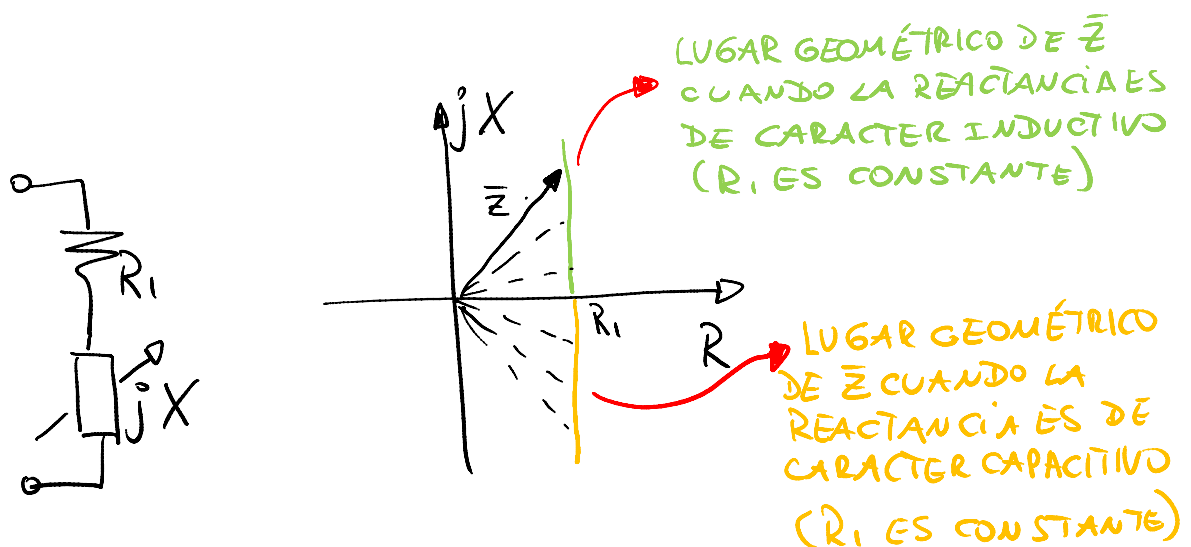 LUGAR GEOMÉTRICO DE Z̅
CUANDO LA REACTANCIA ES
DE CARACTER INDUCTIVO
(R₁ ES CONSTANTE)
jX
Z̅
R₁
R₁
R
jX
LUGAR GEOMÉTRICO
DE Z̅ CUANDO LA
REACTANCIA ES DE
CARACTER CAPACITIVO
(R₁ ES CONSTANTE)